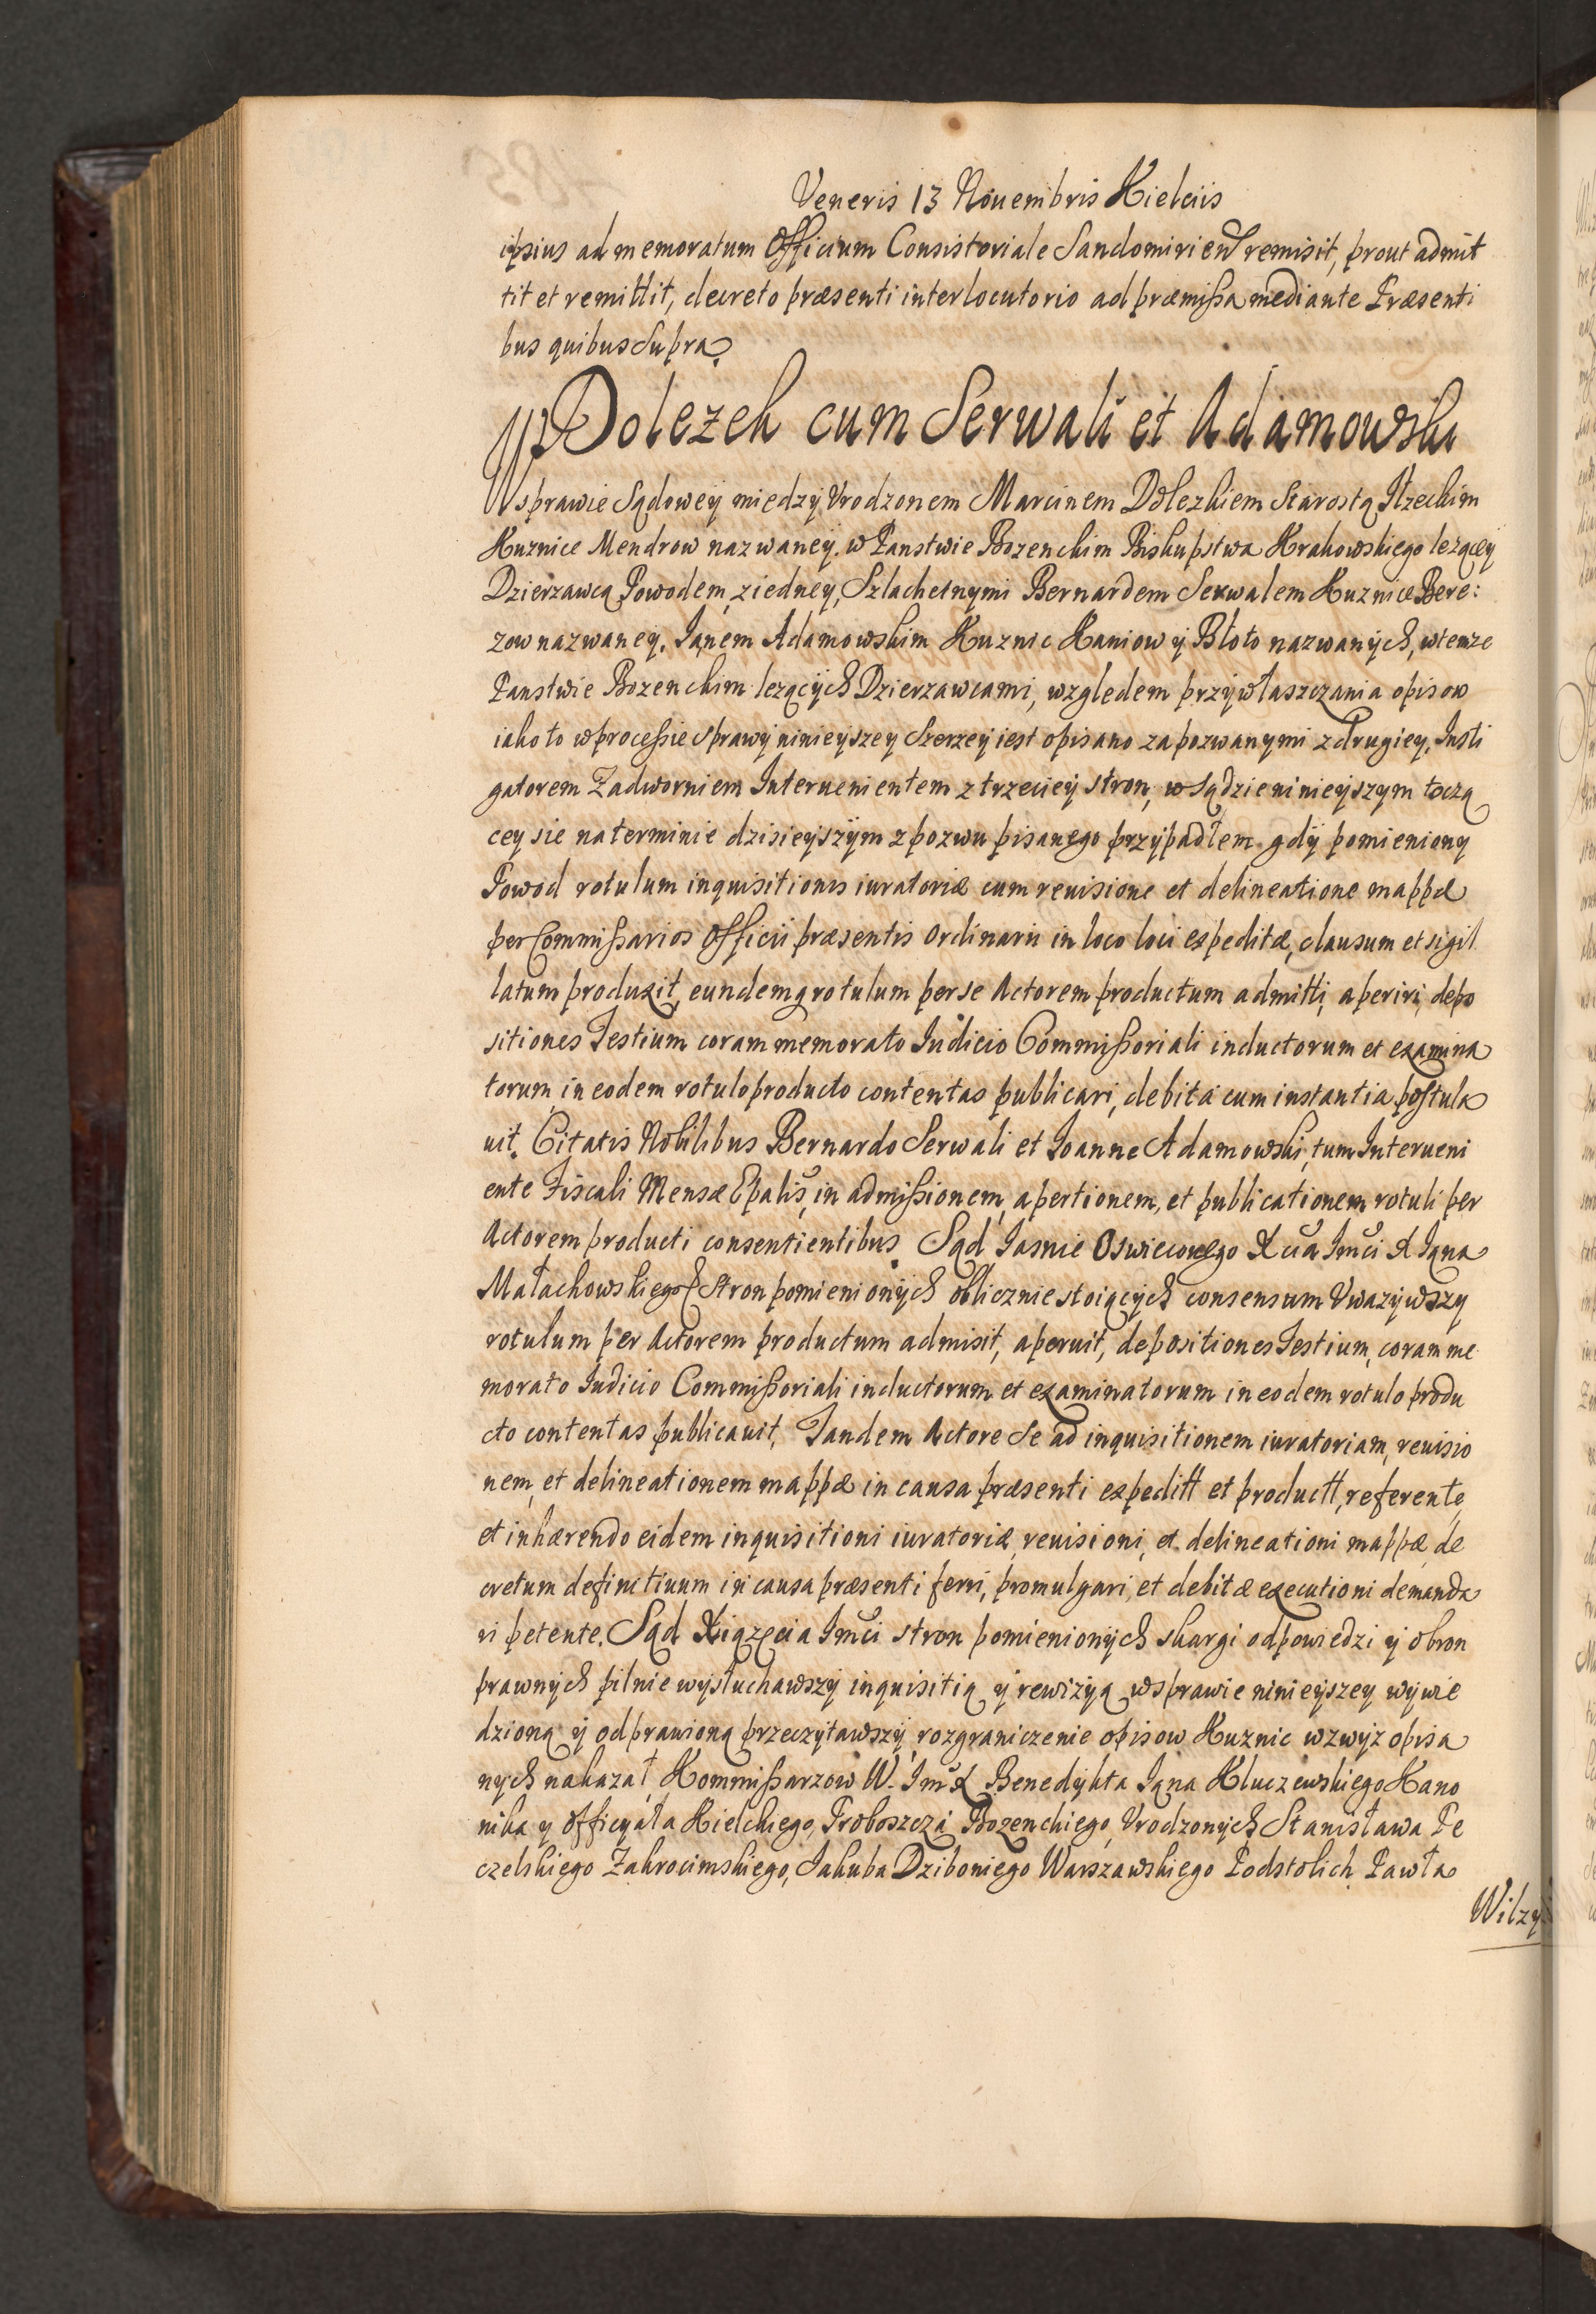 Veneris 13 Nouembris Kielciis
ipsius ad memoratum Officium Consistoriale Sandomirien remisit, prout admit
tit et remittit, decreto præsenti interlocutorio ad præmissa mediante Præsenti
bus quibus Supra.
Dolezek cum Serwali et Adamowski
W sprawie Sądowey miedzy Vrodzonem Marcinem Dolezkiem Starostą Iłzeckim
Kuznice Mendrow nazwaney. w Panstwie Bozenckim Biskupstwa Krakowskiego lezącey
Dzierzawcą Powodem, z iedney, Szlachetnymi Bernardem Serwalem Kuznice Bere:
zow nazwaney. Ianem Adamowskim Kuznic Kaniow y Błoto nazwanych, wtemze
Panstwie Bozenckim lezących Dzierzawcami, względem przywłaszczania opisow
iako to w processie sprawy ninieyszey Szerzey iest opisano zapozwanymi z drugiey, Insti
gatorem Zadworniem Interuenientem z trzeciey stron, w Sądzie ninieyszym toczą
cey sie na terminie dzisieyszym z pozwu pisanego przypadłem gdy pomieniony
Powod rotulum inquisitionis iuratoriæ cum reuisione et delineatione mappæ
per Commissarios Officii præsentis Ordinarii in loco loci expeditæ, clausum et sigil
latum produxit, eundemq rotulum per se Actorem productum admitti, aperiri, depo
sitiones Testium coram memorato Iudicio Commissoriali inductorum et examina
torum in eodem rotulo producto contentas publicari, debita cum instantia postula
uit. Citatis Nobilibus Bernardo Serwali et Ioanne Adamowski, tum Interueni
ente Fiscali Mensæ Epalis, in admissionem, apertionem, et publicationem rotuli per
Actorem producti consentientibus. Sąd Iasnie Oswieconego Xcia Imci X Iana
Małachowskiego Stron pomienionych oblicznie stoiących consensum Vwazywszy
rotulum per Actorem productum admisit, aperuit, depositiones Testium, coram me
morato Iudicio Commissoriali inductorum et examinatorum in eodem rotulo produ
cto contentas publicauit, Tandem Actore Se ad inquisitionem iuratoriam, reuisio
nem, et delineationem mappæ in causa præsenti expeditt et productt, referente,
et inhærendo eidem inquisitioni iuratoriæ, reuisioni, et delineationi mappæ, de
cretum definitiuum in causa præsenti ferri, promulgari, et debitæ executioni demanda
ri petente. Sąd Xiązęcia Imci stron pomienionych skargi odpowiedzi y obron
prawnych pilnie wysłuchawszy inquisitią y rewizyą w sprawie ninieyszey wywie
dzioną y odprawioną przeczytawszy rozgraniczenie opisow Kuznic wzwyz opisa
nych nakazał, Kommissarzow W. Im X Benedykta Iana Kluczewskiego Kano
nika y Officyała Kielckiego, Proboszcza Bozenckiego, Vrodzonych Stanisława Pe
czelskiego Zakrocimskiego, Iakuba Dziboniego Warszawskiego Podstolich Pawła
Wilzy